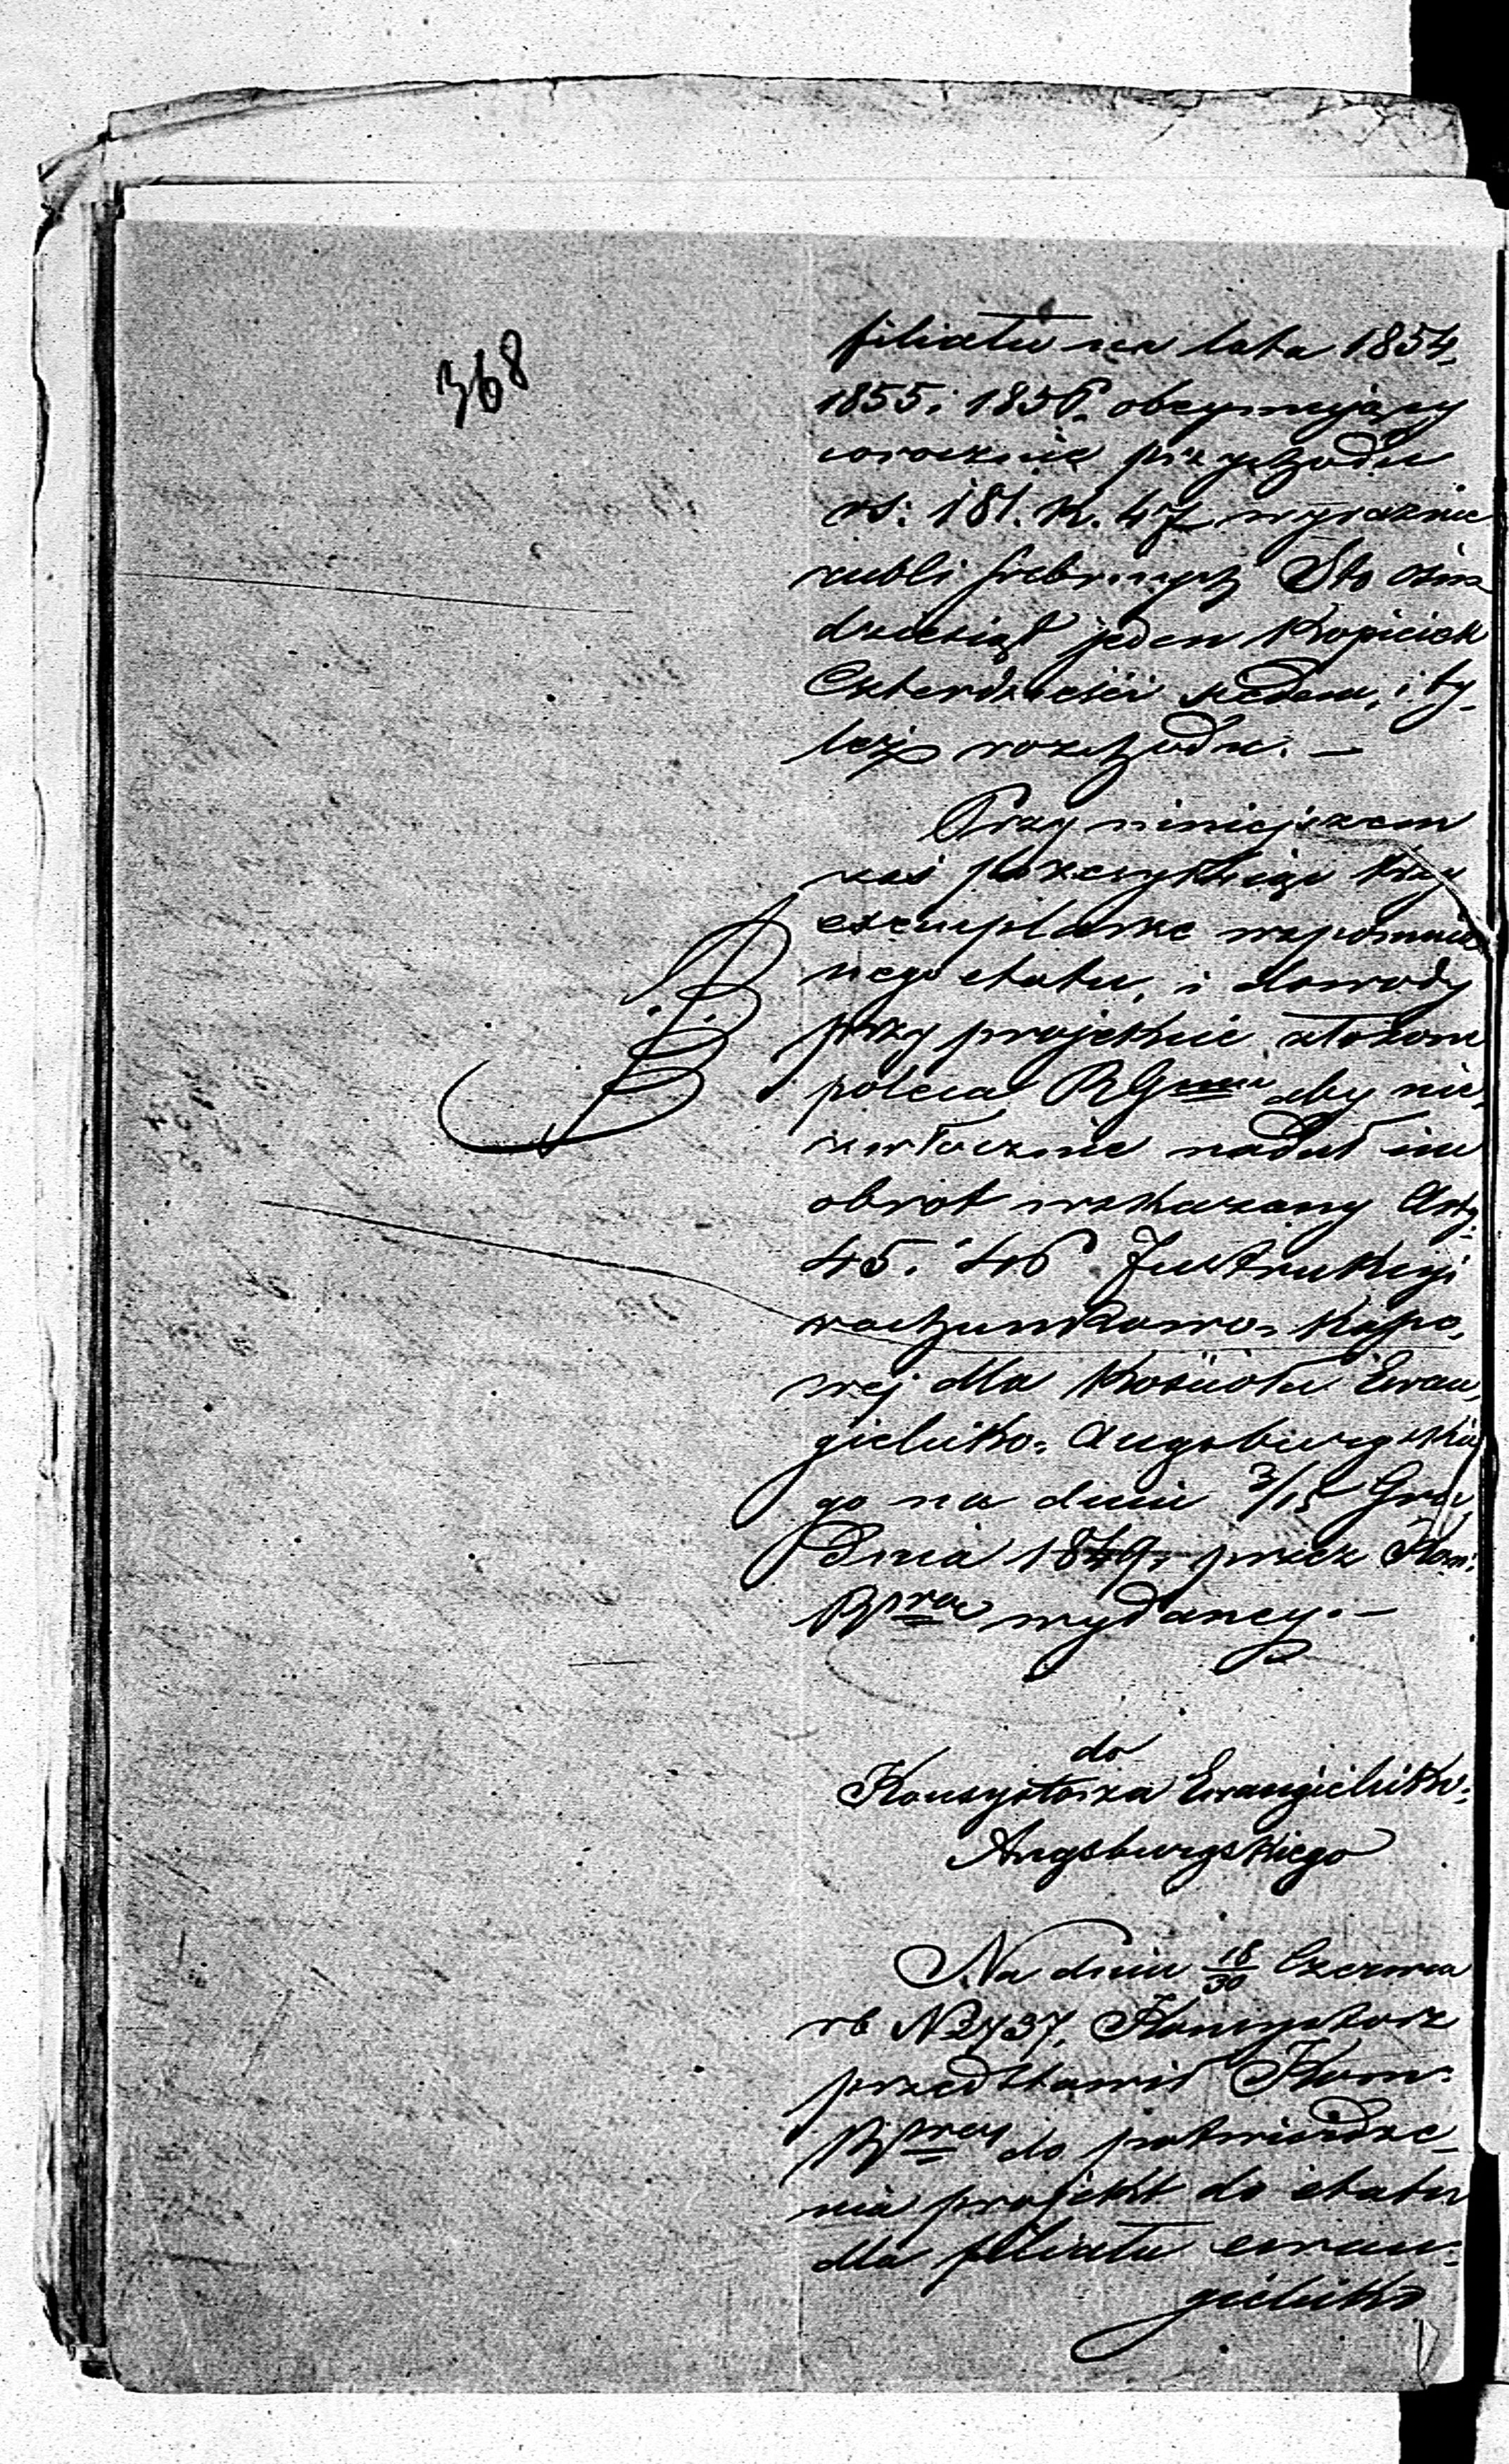 368
filiału na lata 1854,
1855 i 1856 obejmujący
corocznie przychodu
rs: 181. k. 47 wyraźnie
rubli srebrnych Sto ośm
dziesiąt jeden Kopiejek
Czterdzieści siedem, i ty-
leż rozchodu. —
Przy niniejszem
zaś przesyłając trzy
exemplarze wspomnio
nego etatu, i dowody
przy projekcie złożone
poleca RG aby nie-
zwłocznie nadał im
obrot wskazany Arty.
45. i 46 Instrukcyi
rachunkowo-Kasso-
wej dla Kościoła Ewan-
gielicko-Augsburgskie
go na dniu 3/15 Gru
dnia 1849 przez Kom:
Rząd wydanej. —
do
Konsystorza Ewangielicko-
Augsburgskiego
Na dniu 18/30 Czerwca
rb N 2737, Konsystorz
przedstawił Kom:
Rząd do potwierdze-
nia projekt do etatu
dla filiału ewan-
gielicko